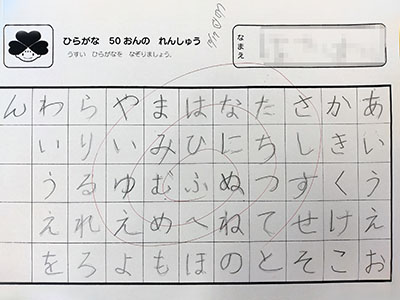 ひらがな 50おんの れんしゅう
うすい ひらがなを なぞりましょう。
なまえ
あいうえお
かきくけこ
さしすせそ
たちつてと
なにぬねの
はひふへほ
まみむめも
やいゆえよ
らりるれろ
わいうえを
ん